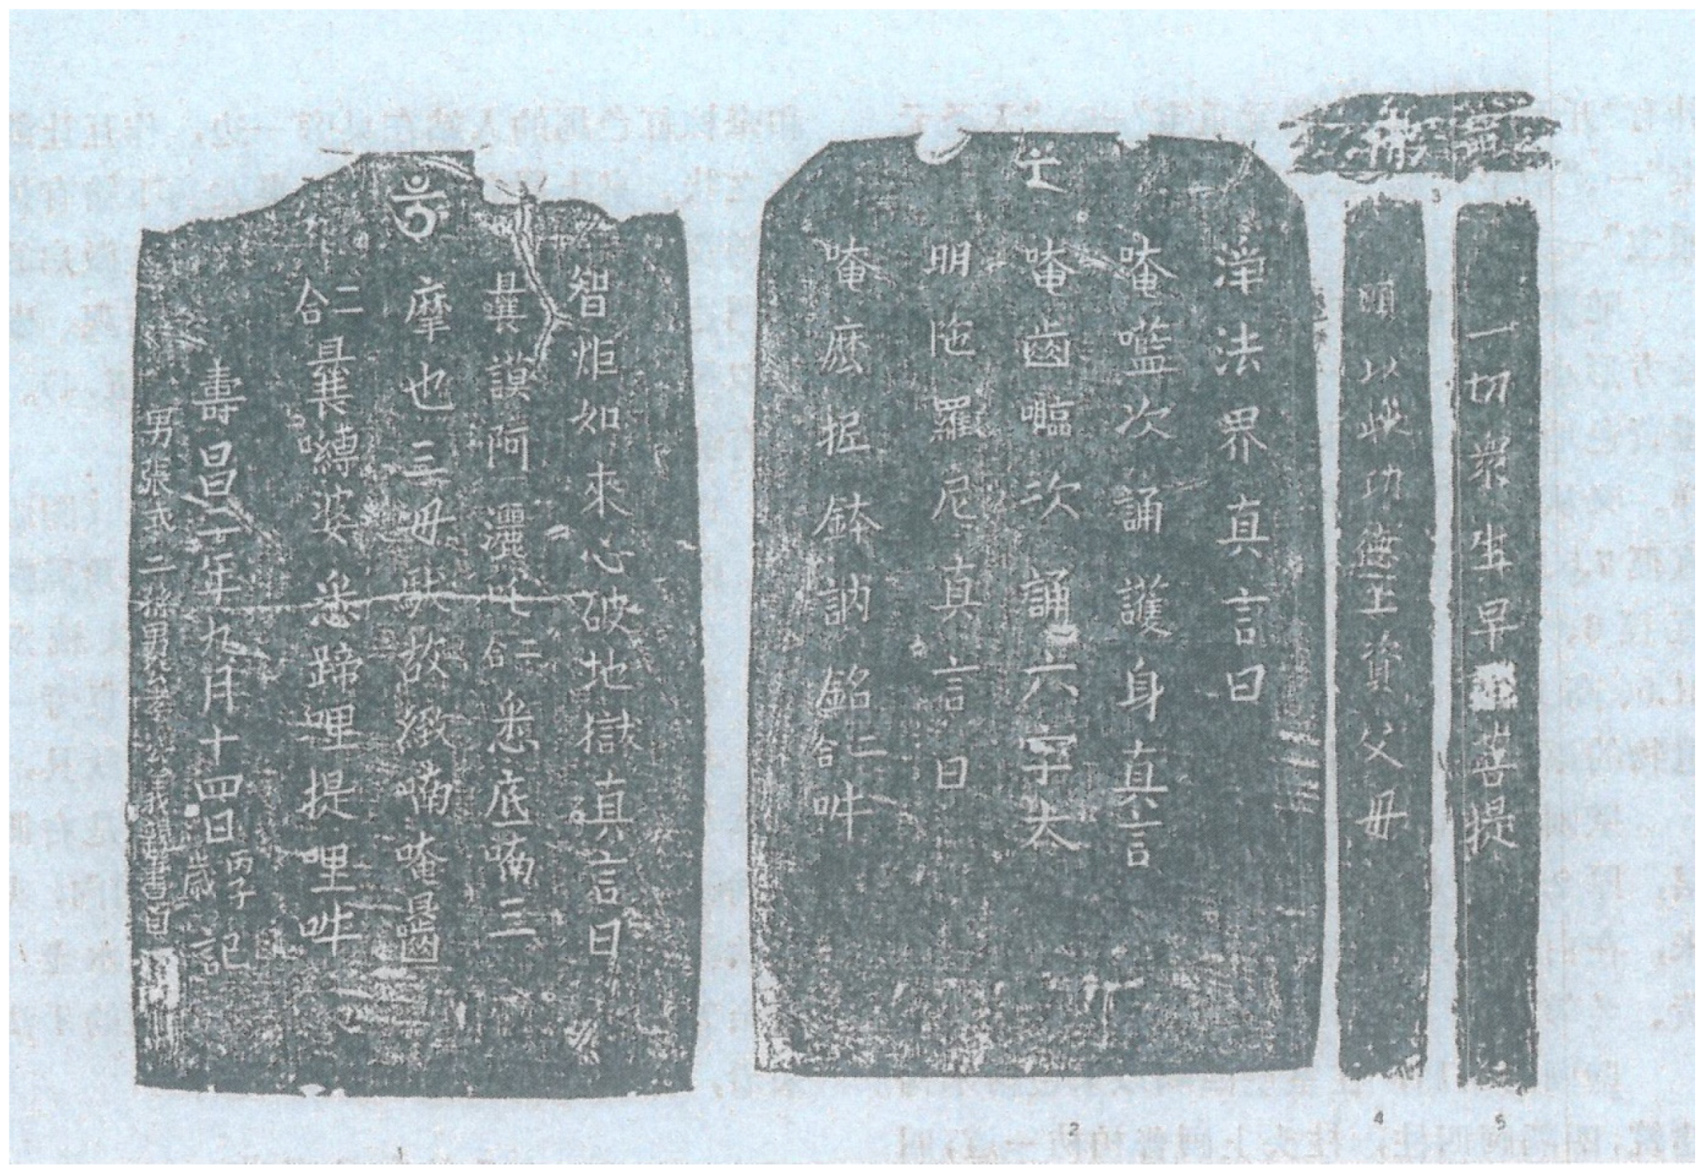 智炬如來心破地獄真言曰
曩謨阿灑吒二合悉底喃三
摩也三毋馱故緻喃唵
二合曩嚩婆悉蹄哩提哩吽
壽昌二年九月十四日丙子歲記
男張 二孫男
1
淨法界真言曰
唵嚂次誦護身真言
唵齒 次誦六字大
明陁羅尼真言曰
唵麽抳鉢訥銘二合吽
2
3
願以此功德上資父毋
4
一切衆生早 菩提
5